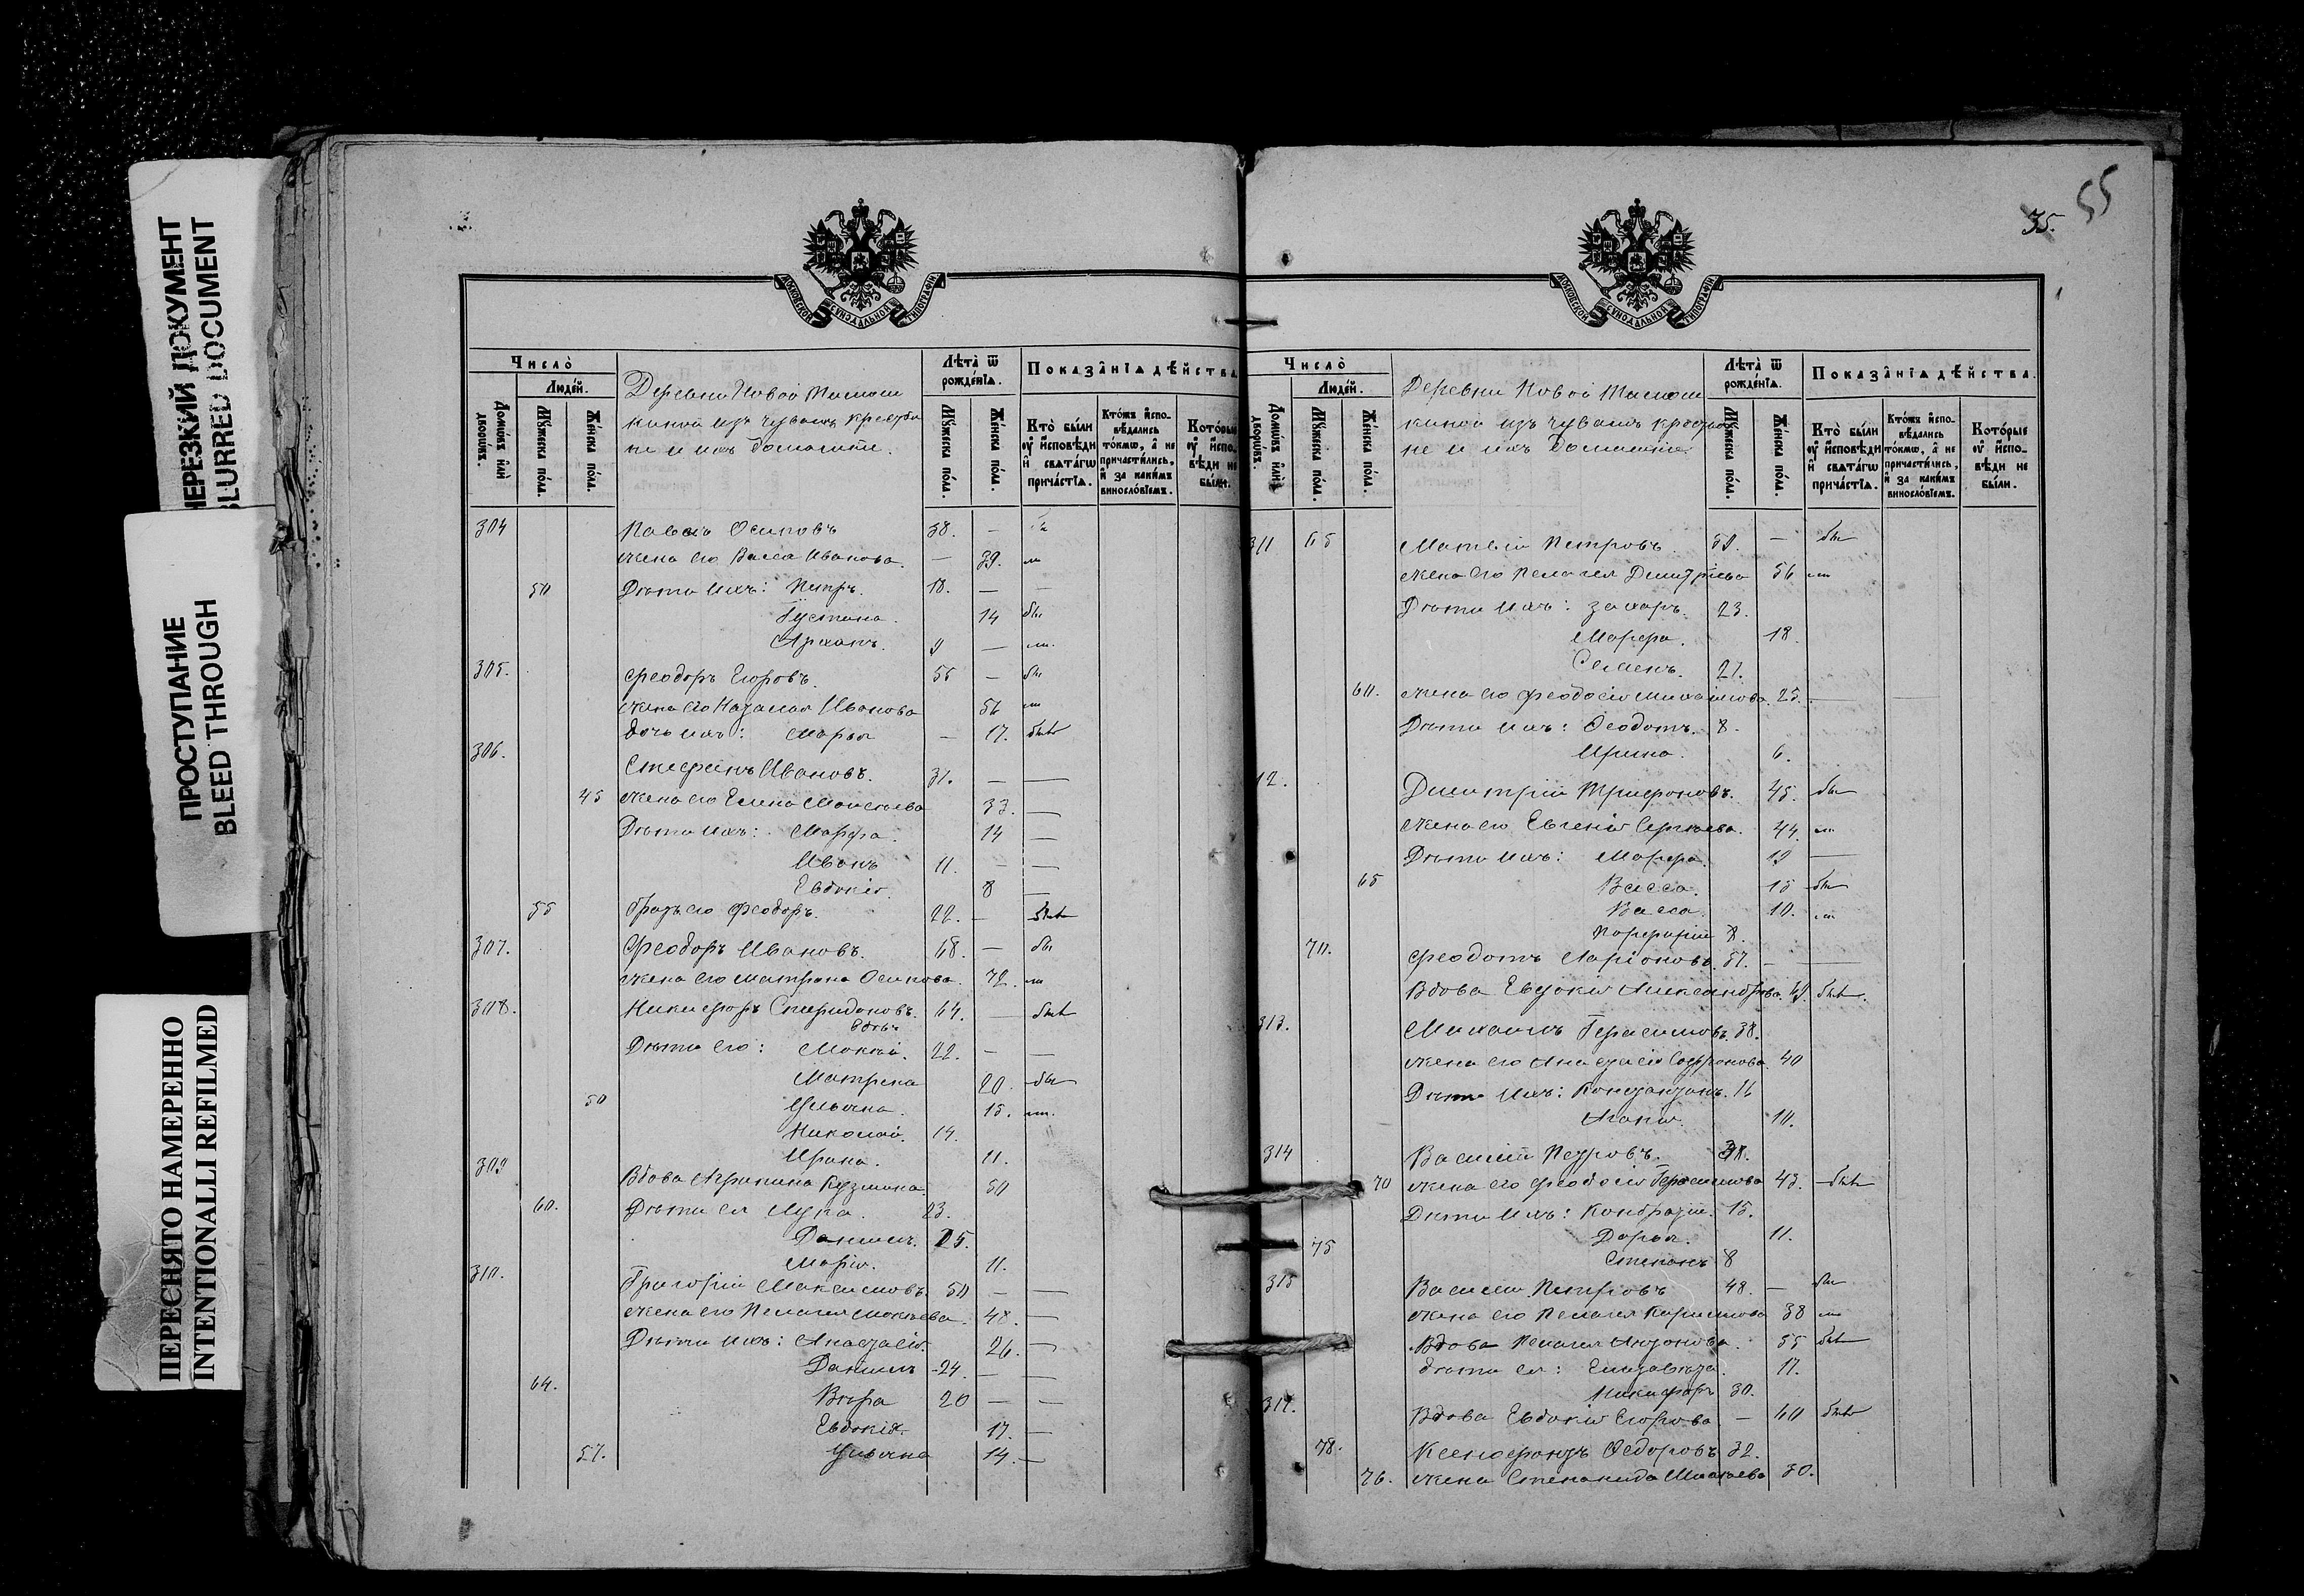 НЕРЕЗКИЙ ДОКУМЕНТ
BLURRED DOCUMENT
ПРОСТУПАНИЕ
BLEED THROUGH
ПЕРЕСНЯТО НАМЕРЕННО
INTENTIONALLI REFILMED
МОСКОВСКОЙ СѴНОДАЛЬНОЙ ТИПОГРАФІИ
Число̀
Людей.
Домѡвъ или дворѡвъ.
Мꙋжеска пола.
Женска пола.
Деревни Новой
киной изъ чувашъ крестья
не и ихъ домашніе.
Лѣта ѿ рожденїѧ.
Мꙋжеска пола.
Женска пола.
Показанїѧ дѣйства
Кто были ꙋ исповѣди и свѧтагѡ причастїѧ.
Ктожъ исповѣдались токмѡ, а не причастились, и за какимъ винословїемъ.
Которые ꙋ исповѣди не были.
304 Павелъ Осиповъ 38. —
жена его Васса Иванова. — 39.
50 Дѣти ихъ: Петръ. 18. —
Густина. 14 бы
9 —
305. Феодоръ Егоровъ. 55 — бы
жена его Наталія Иванова 56
дочь ихъ: Марья — 17. бытъ
306. Стефанъ Ивановъ. 37. — —
45 жена его Елена Моисеева 33. —
Дѣти ихъ: Марфа. 14 —
Иванъ 11. — —
Евдокія. 8 —
55 братъ его Феодоръ. 22. —
307. Феодоръ Ивановъ. 68. — бы
жена его Матрона Осипова. 72.
308. Никифоръ Спиридоновъ. 64. — бытъ
вдовъ
Дѣти его: Мокей. 22. — —
Матрена 20. бы
50 Ульяна. 15.
Николай. 14.
Ирина. 11.
309 Вдова Агрипина Кузмина 50
60. Дѣти ея Лука. 23.
Данилъ. 15.
Марія. 11.
310. Григорій Максимовъ. 50 — —
жена его Пелагия Мокѣева. 48. —
Дѣти ихъ: Анастасія. 26. —
Данилъ 24. — —
64. Вѣра 20 — —
Евдокія. 17. —
57. Ульяна 14. —
35.
55
МОСКОВСКОЙ СѴНОДАЛЬНОЙ ТИПОГРАФІИ
Число̀
Людей.
Домѡвъ или дворѡвъ.
Мꙋжеска пола.
Женска пола.
Деревни Новой
киной изъ чувашъ крестья
не и ихъ домашніе
Лѣта ѿ рожденїѧ.
Мꙋжеска пола.
Женска пола.
Показанїѧ дѣйства.
Кто были ꙋ исповѣди и свѧтагѡ причастїѧ.
Ктожъ исповѣдались токмѡ, а не причастились, и за какимъ винословїемъ.
Которые ꙋ исповѣди не были.
311 65 Матвѣй Петровъ. 59. — бы
жена его Пелагея Димитріева 56
Дѣти ихъ: Захаръ. 23.
Марфа. 18.
Семенъ. 27.
60. жена его Феодосія Михайлова. 25. —
Дѣти ихъ: Феодотъ. 8.
Ирина. 6.
12. Димитрій Трифоновъ. 45. бы
жена его Евгенія Сергѣева. 44.
Дѣти ихъ: Марфа. 19 —
65 Васса. 15 бы
Васса. 10.
Порфирій 8.
70. Феодотъ Ларіоновъ. 57. — —
Вдова Евдокия Александрова. 69. бытъ.
313. Михаилъ Герасимовъ. 38.
жена его Анастасія Софронова. 40
Дѣти ихъ: Константинъ. 16
10.
314 Василій Петровъ. 38.
70 жена его Феодосія Герасимова 43. бытъ
Дѣти ихъ: Кондратій. 15.
Дарья. 11.
75 Степанъ 8
315 Василій Петровъ 48. — бы
жена его Пелагея Кирилова 38
Вдова Пелагея Антонова. 55 бытъ
дѣти ея: Елизавета. 17.
Никифоръ 30.
317. Вдова Евдокія Егорова — 60 бытъ
78. Ксенофонтъ Федоровъ 32.
76. жена Степанида 30.